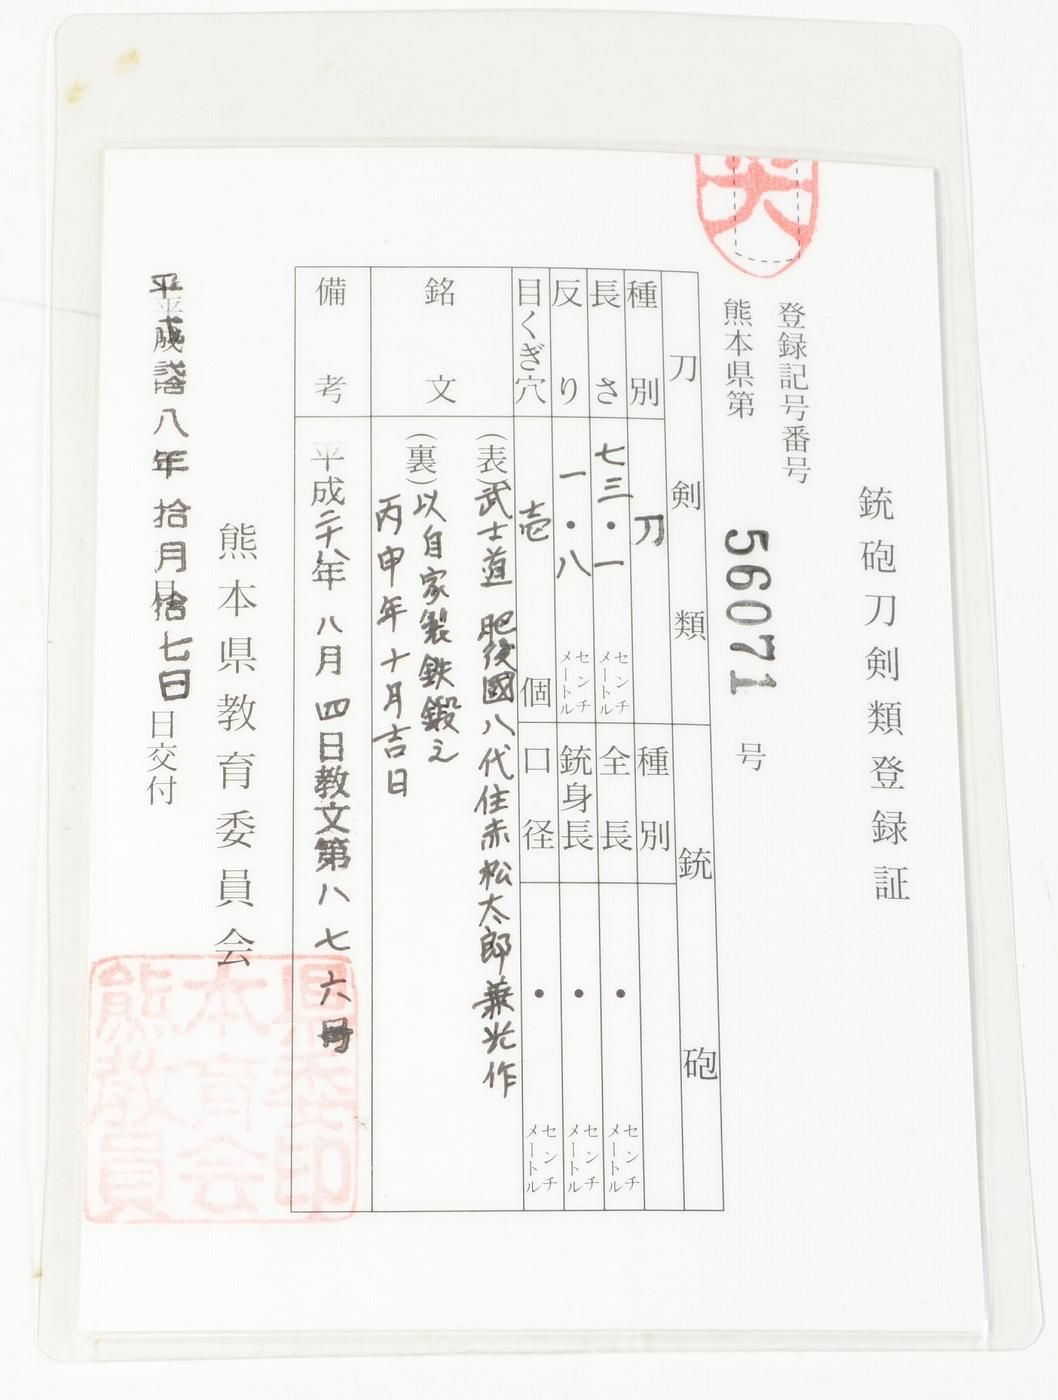 銃砲刀剣類登録証
登録記号番号
熊本県第 56071 号
刀剣類
種別 刀
長さ 七三・一 センチメートル
反り 一・八 センチメートル
目くぎ穴 壱 個
銃砲
種別
全長 ・ センチメートル
銃身長 ・ センチメートル
口径 ・ センチメートル
銘文
(表)武士道 肥後國八代住赤松太郎兼光作
(裏)以自家製鉄鍛之
丙申年十月吉日
備考
平成二十八年 八月 四日教文第八七六号
熊本県教育委員会
八年 拾月 拾七日 日交付
県委印
本育会
熊教員